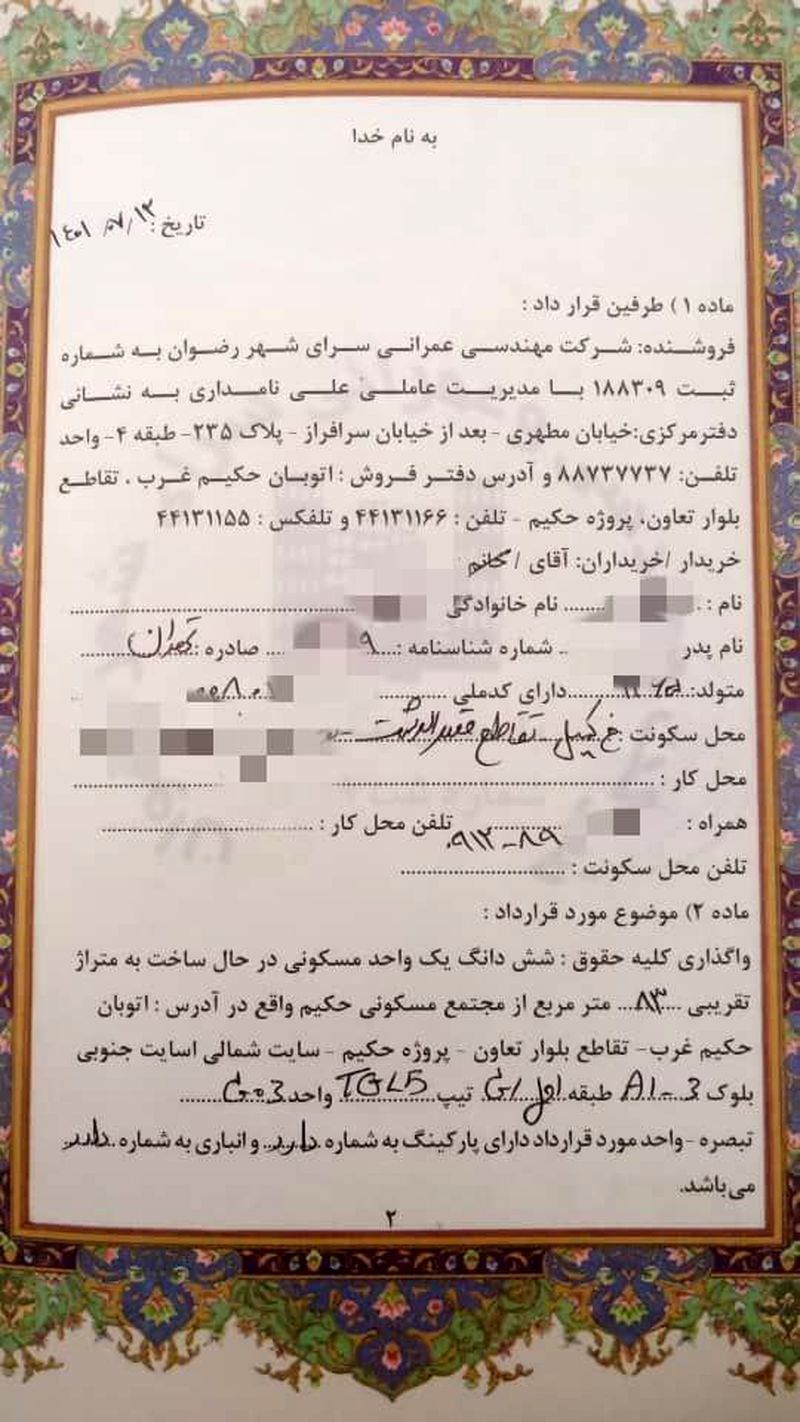 به نام خدا
تاریخ: ۱۴۰۱/۰۷/۱۳
ماده ۱) طرفین قرار داد :
فروشنده: شرکت مهندسی عمرانی سرای شهر رضوان به شماره
ثبت ۱۸۸۳۰۹ با مدیریت عاملی علی نامداری به نشانی
دفترمرکزی:خیابان مطهری - بعد از خیابان سرافراز - پلاک ۲۳۵- طبقه ۴- واحد
تلفن: ۸۸۷۳۷۷۳۷ و آدرس دفتر فروش : اتوبان حکیم غرب ، تقاطع
بلوار تعاون، پروژه حکیم - تلفن : ۴۴۱۳۱۱۶۶ و تلفکس : ۴۴۱۳۱۱۵۵
خریدار /خریداران: آقای / خانم
نام : ........ نام خانوادگی ........
نام پدر .. شماره شناسنامه :....۹ .... صادره : تهران
متولد: ........دارای کدملی ...........
محل سکونت : تقاطع
محل کار : ........
همراه : ۰۹۱۲-۸۹ تلفن محل کار : ........
تلفن محل سکونت : ........
ماده ۲) موضوع مورد قرارداد :
واگذاری کلیه حقوق : شش دانگ یک واحد مسکونی در حال ساخت به متراژ
تقریبی ...۸۳... متر مربع از مجتمع مسکونی حکیم واقع در آدرس : اتوبان
حکیم غرب- تقاطع بلوار تعاون - پروژه حکیم - سایت شمالی اسایت جنوبی
بلوک A1-3 طبقه اول G1 تیپ واحد G03
تبصره -واحد مورد قرارداد دارای پارکینگ به شماره دارد و انباری به شماره دارد
می‌باشد.
۲